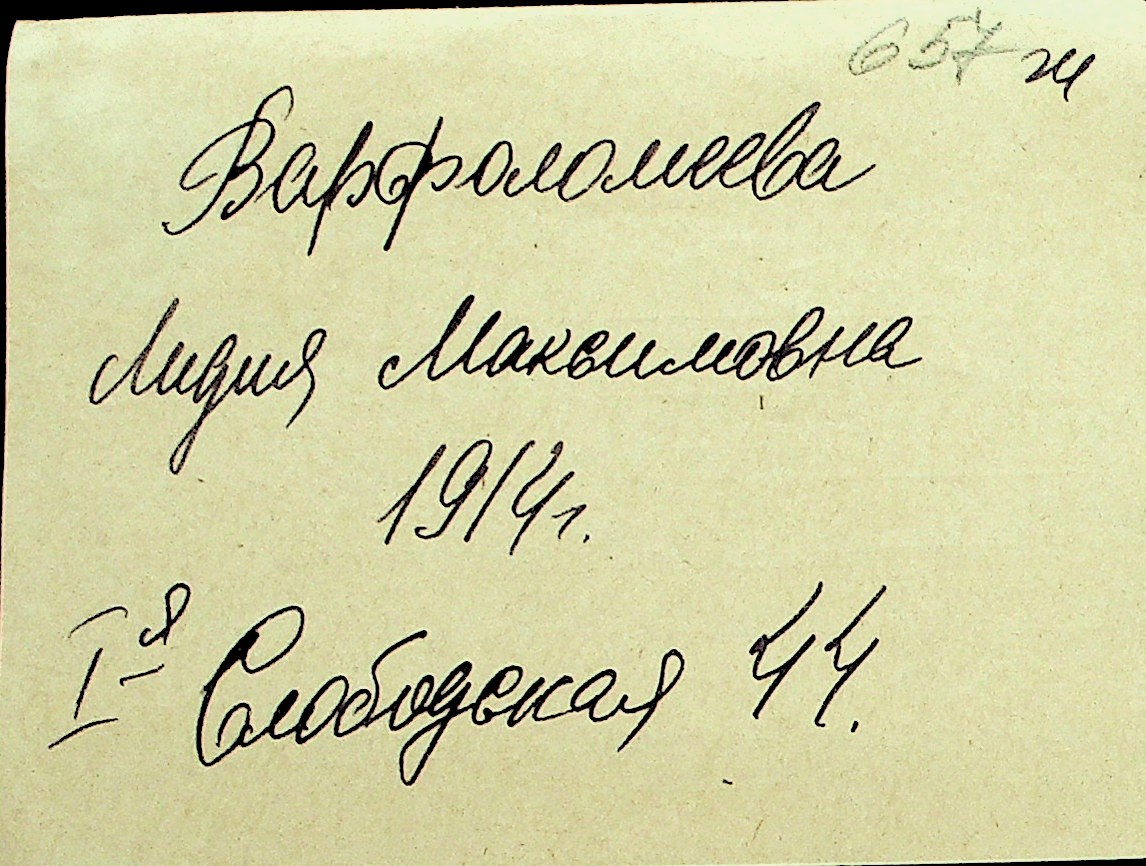 657 ж
Варфоломеева
Лидия Максимовна
1914г.
I-я Слободская 44.